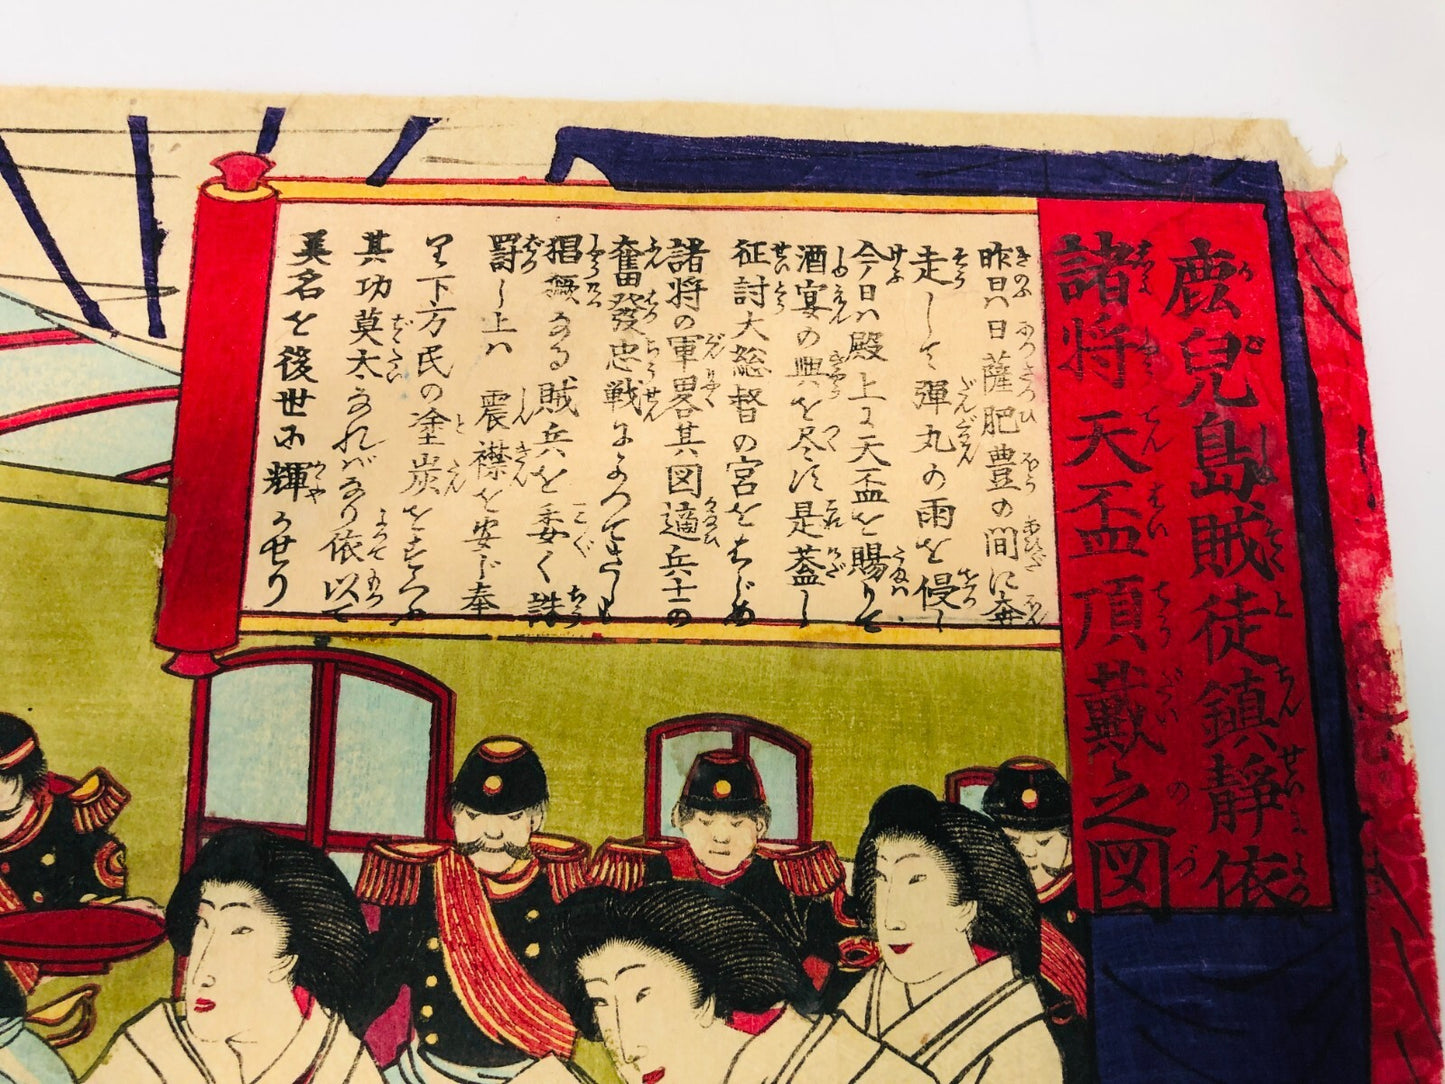 鹿兒島賊徒鎮静依
諸将天盃頂戴之図
昨日ハ日薩肥豊の間に奔
走して彈丸の雨を侵し
今日ハ殿上に天盃を賜りて
酒宴の興を尽す是蓋し
征討大総督の宮をはじめ
諸将の軍畧其図適兵士の
奮発忠戦によつてさしも
猖獗なる賊兵を悉く誅
罰し上ハ震襟を安じ奉
り下方民の塗炭をすくふ
其功莫大なれバなり依以て
美名を後世に輝かせり